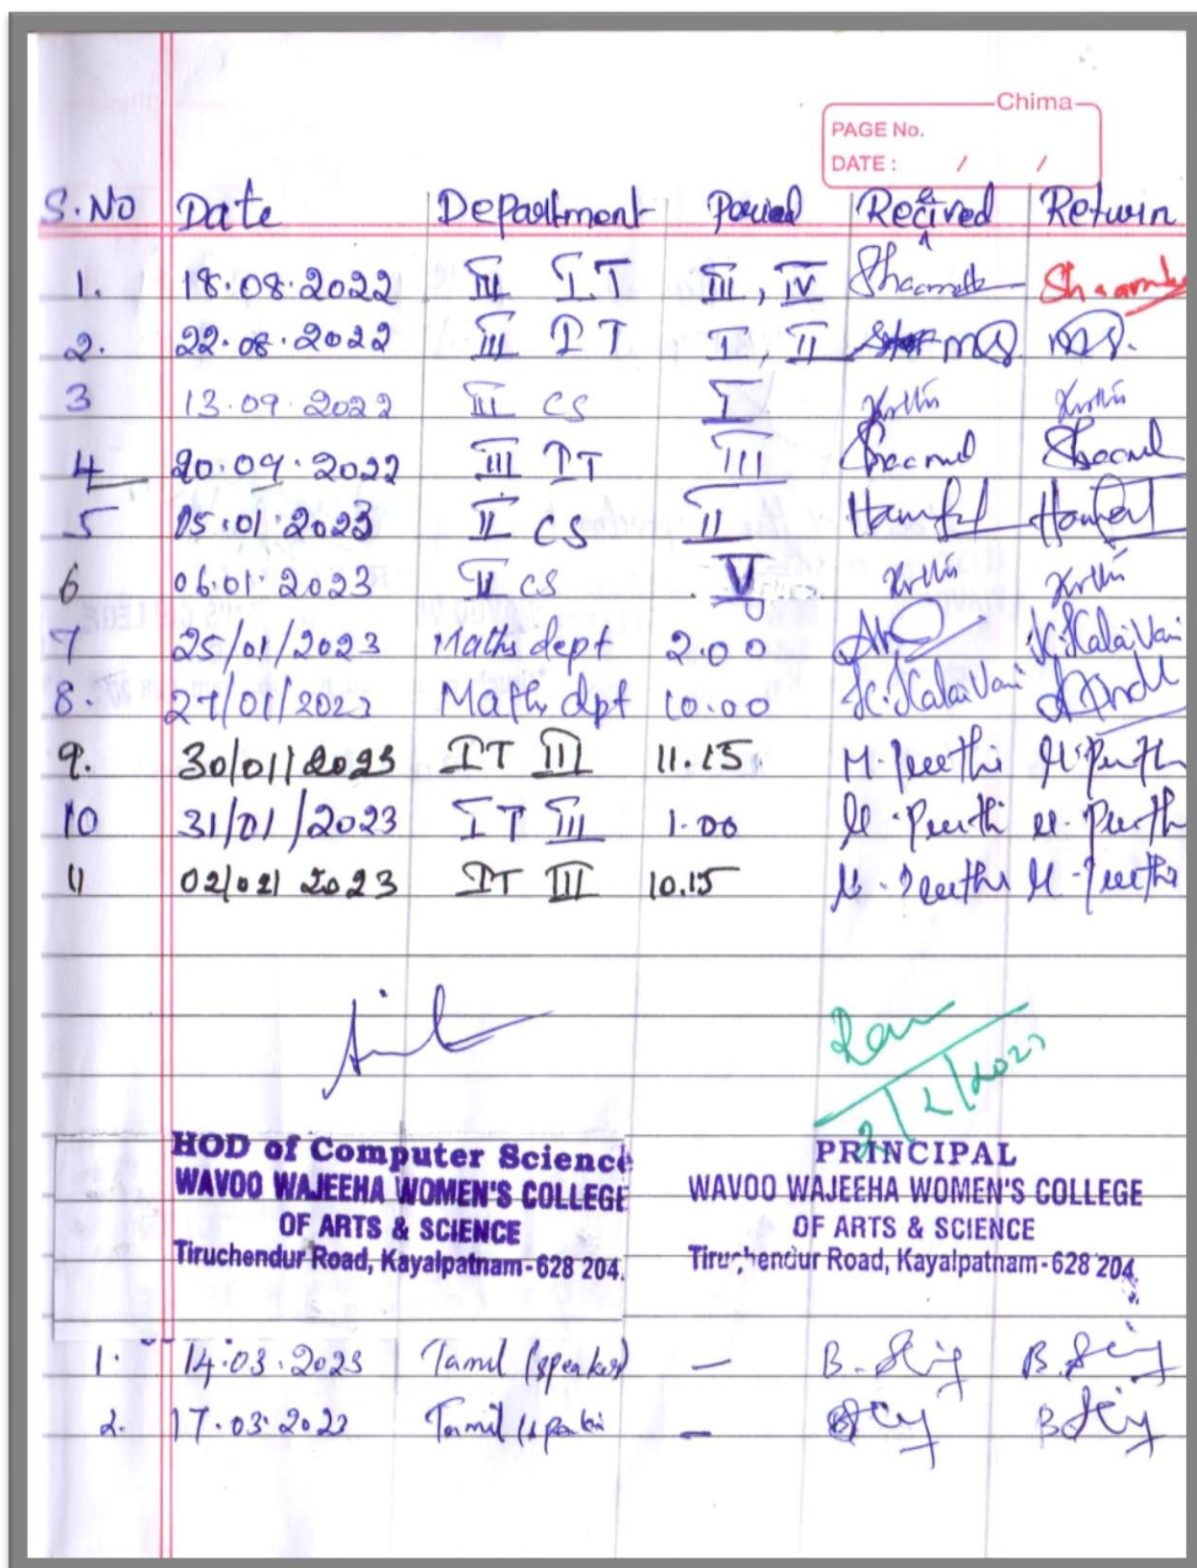 Chima
PAGE No.
DATE : / /
S.No Date Department Period Recived Return
1. 18.08.2022 III IT III, IV
2. 22.08.2022 III IT I, II
3 13.09.2022 III CS I
4 20.09.2022 III IT III
5 05.01.2023 II CS II
6 06.01.2023 II CS V
7 25/01/2023 Maths dept 2.00 K.KalaiVani
8. 27/01/2023 Maths dpt 10.00 K.KalaiVani
9. 30/01/2023 IT III 11.15 M.Preethi M.Preethi
10 31/01/2023 IT III 1.00 M.Preethi M.Preethi
11 02/02/2023 IT III 10.15 M.Preethi M.Preethi
2/2/2023
HOD of Computer Science
WAVOO WAJEEHA WOMEN'S COLLEGE
OF ARTS & SCIENCE
Tiruchendur Road, Kayalpatnam-628 204.
PRINCIPAL
WAVOO WAJEEHA WOMEN'S COLLEGE
OF ARTS & SCIENCE
Tiruchendur Road, Kayalpatnam-628 204.
1. 14.03.2023 Tamil (speaker) —
2. 17.03.2023 Tamil —